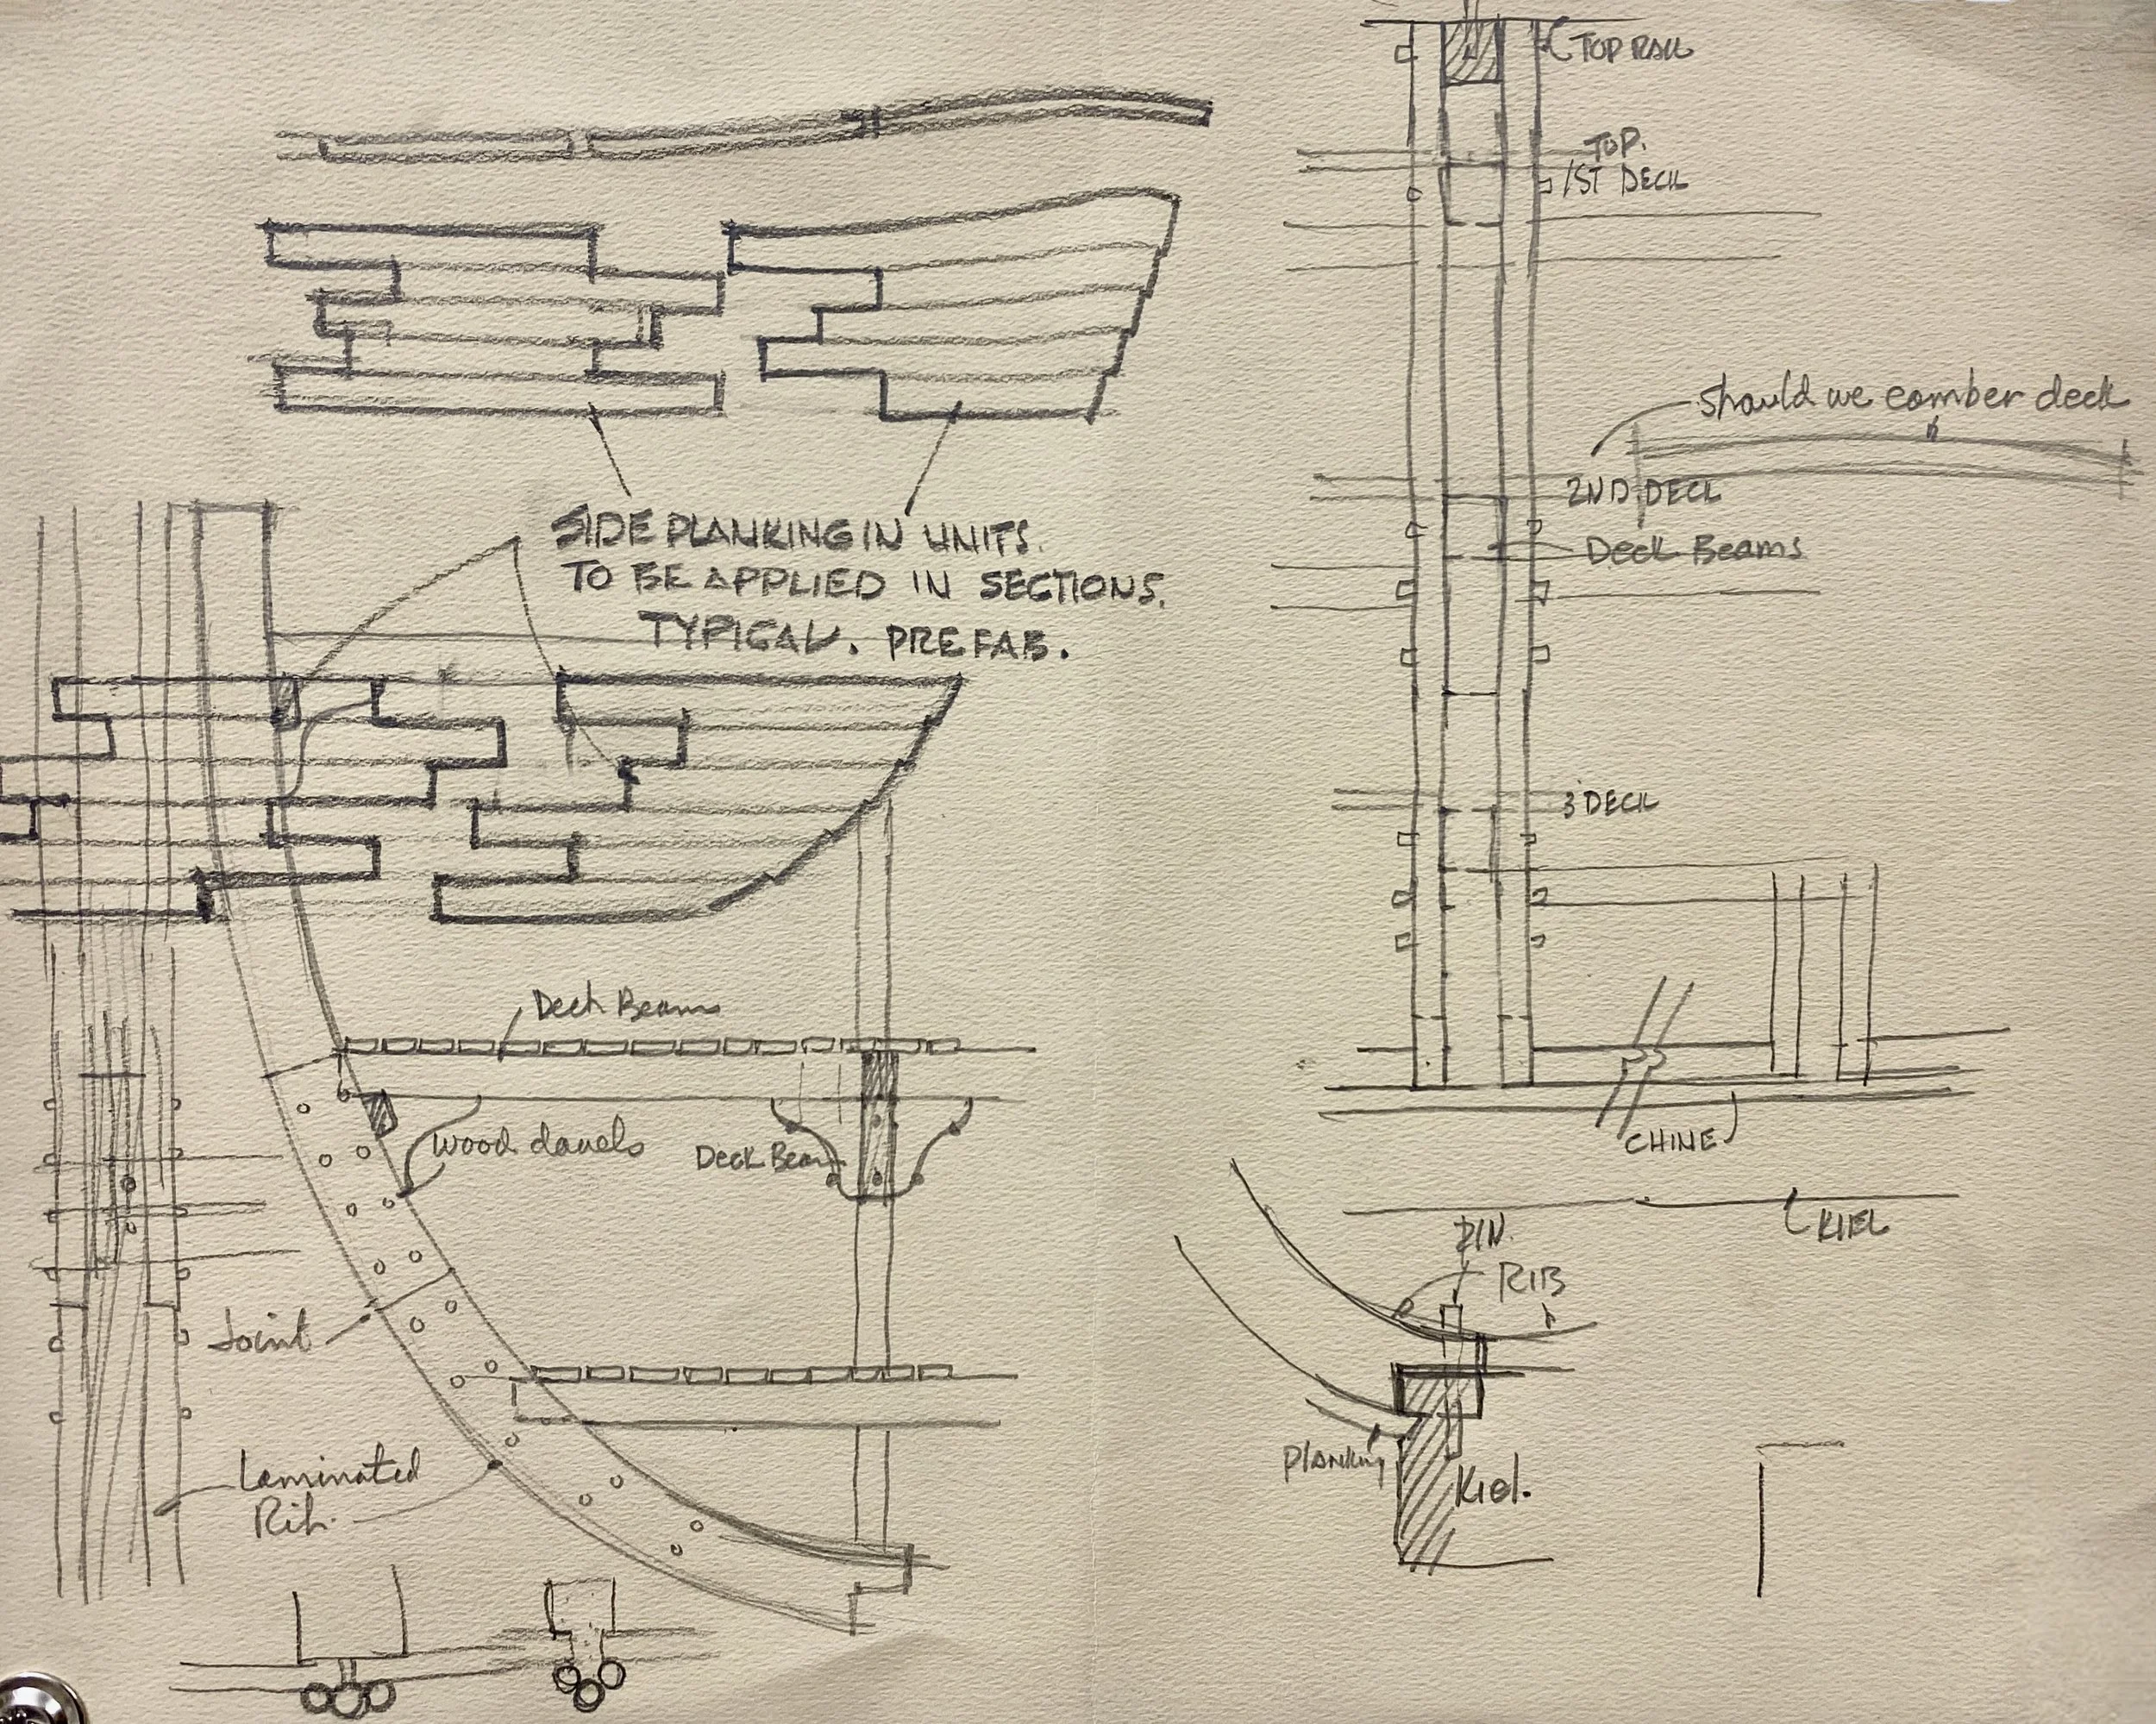 TOP RAIL
TOP.
1ST DECK
should we comber deck
2ND DECK
Deck Beams
SIDE PLANKING IN UNITS.
TO BE APPLIED IN SECTIONS.
TYPICAL. PREFAB.
3 DECK
Deck Beams
wood dowels
Deck Beam
CHINE
KIEL
PIN.
RIB
Joint
Planking
Kiel.
Laminated
Rib.